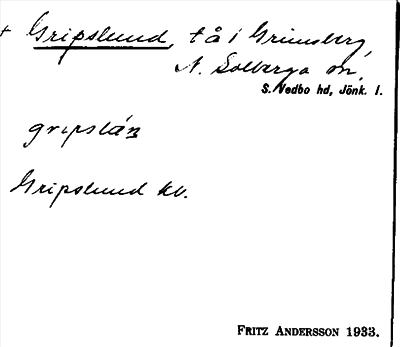 + Gripslund, tå i Grimsberg,
N. Solberga sn,
S. Vedbo hd, Jönk. l.
gripslán
Gripslund kv.
FRITZ ANDERSSON 1933.